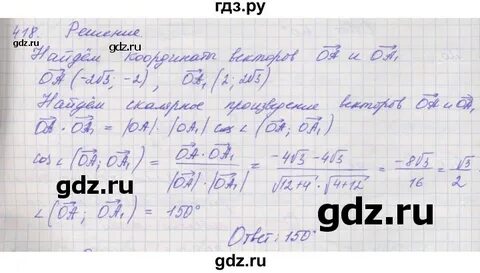 гдз.ру
418. Решение.
Найдём координаты векторов OA и OA₁
OA (-2√3; -2), OA₁ (2; 2√3)
Найдём скалярное произведение векторов OA и OA₁
OA · OA₁ = |OA| · |OA₁| cos∠(OA; OA₁)
cos∠(OA; OA₁) = OA · OA₁ / |OA| · |OA₁| = -4√3 - 4√3 / √12+4 · √4+12 = -8√3 / 16 = √3 / 2
gdz.ru gdz.ru gdz.ru
∠(OA; OA₁) = 150°
Ответ: 150°
gdz.ru gdz.ru